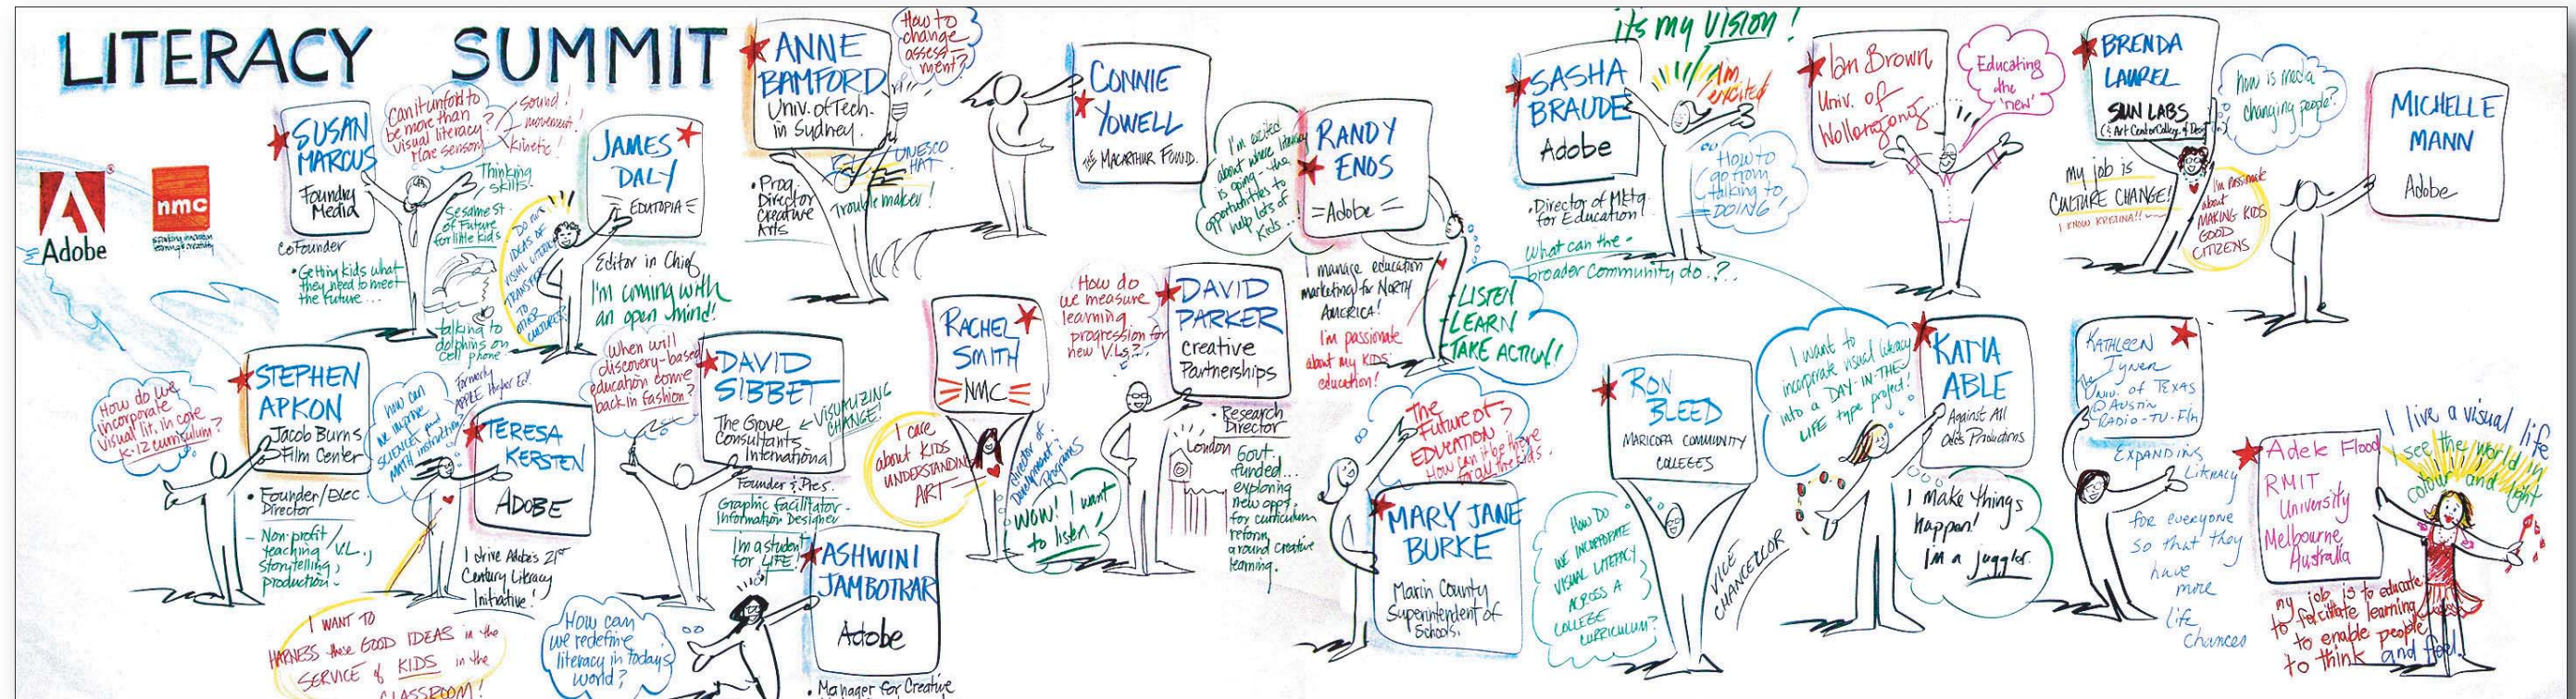 LITERACY SUMMIT
Adobe
nmc
SUSAN
MARCUS
Foundry
Media
CoFounder
• Getting kids what
they need to meet
the future...
Can it unfold to
be more than
visual literacy?
More sensory
Sound!
movement!
kinetic!
Thinking
skills.
Sesame St.
of Future
for little kids
talking to
dolphins on
cell phone
JAMES
DALY
EDUTOPIA
Editor in Chief
I'm coming with
an open mind!
DO our
IDEAS OF
VISUAL LITERACY
TRANSFER
TO
OTHER
CULTURES?
ANNE
BAMFORD
Univ. of Tech.
in Sydney.
• Prog.
Director
Creative
Arts
How to
change
assess-
ment?
UNESCO
HAT
Trouble maker!
CONNIE
YOWELL
THE MACARTHUR FOUND.
I'm excited
about where literacy
is going - the
opportunities to
help lots of
kids...!
RANDY
ENOS
Adobe
I manage education
marketing for NORTH
AMERICA!
I'm passionate
about my KIDS'
education!
LISTEN
LEARN
TAKE ACTION!
its my vision!
SASHA
BRAUDE
Adobe
• Director of Mktg.
for Education
I'm
excited
How to
go from
talking to
DOING!
What can the
broader Community do..?..
Ian Brown
Univ. of
Wollongong
Educating
the
'new'
BRENDA
LAUREL
SUN LABS
(& Art Center College of Design)
my job is
CULTURE CHANGE!
I KNOW KRISTINA!!
how is media
changing people?
I'm passionate
about
MAKING KIDS
GOOD
CITIZENS
MICHELLE
MANN
Adobe
STEPHEN
APKON
Jacob Burns
Film Center
• Founder/Exec.
Director
- Non-profit
teaching V.L.,
storytelling,
production
How do we
incorporate
visual lit. in core
K-12 curriculum?
how can
we improve
SCIENCE and
MATH instruction?
Formerly
APPLE Higher Ed!
TERESA
KERSTEN
ADOBE
I drive Adobe's 21st
Century Literacy
Initiative!
I WANT TO
HARNESS these GOOD IDEAS in the
SERVICE of KIDS in the
CLASSROOM!
When will
discovery-based
education come
back in fashion?
DAVID
SIBBET
The Grove
Consultants
International
VISUALIZING
CHANGE!
Founder & Pres.
Graphic facilitator -
Information Designer
I'm a student
for LIFE!
How can
we redefine
literacy in todays
world?
ASHWINI
JAMBOTKAR
Adobe
• Manager for Creative
RACHEL
SMITH
NMC
I care
about KIDS
UNDERSTANDING
ART
Director of
Development
Programs
WOW! I want
to listen!
How do
we measure
learning
progression for
new V.L.s?
DAVID
PARKER
creative
Partnerships
• Research
Director
London
Govt.
funded...
exploring
new opps.
for curriculum
reform
around creative
learning.
The
Future of
EDUCATION
How can it be there
for all the kids.
MARY JANE
BURKE
Marin County
Superintendent of
Schools.
RON
BLEED
MARICOPA COMMUNITY
COLLEGES
HOW DO
WE INCORPORATE
VISUAL LITERACY
ACROSS A
COLLEGE
CURRICULUM?
VICE
CHANCELLOR
I want to
incorporate visual literacy
into a DAY-IN-THE-
LIFE type project!
KATYA
ABLE
Against All
Odds Productions
I make things
happen!
I'm a juggler.
KATHLEEN
Tyner
The Univ. of TEXAS
@ AUSTIN
RADIO-TV-Film
EXPANDING
LITERACY
for everyone
so that they
have
more
life
chances
Adele Flood
RMIT
University
Melbourne
Australia
I live a visual life
I see the world in
colour and light
my job is to educate
to facilitate learning
to enable people
to think and feel!